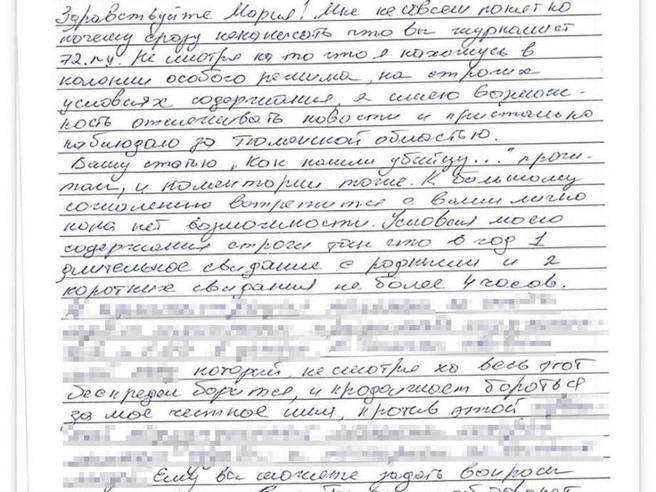 Здравствуйте Мария! Мне не совсем понятно
почему сразу не написать что вы журналист
72.ru. Не смотря на то что я нахожусь в
колонии особого режима, на строгих
условиях содержания, я имею возмож-
ность отслеживать новости и пристально
наблюдаю за Тюменской областью.
Вашу статью „Как нашли убийцу..." прочи-
тал, и коментарии тоже. К большому
сожалению встретится с вами лично
пока нет возможности. Условия моего
содержания строги так что в год 1
длительное свидание с родными и 2
коротких свидания не более 4 часов.
который, не смотря на весь этот
беспредел борится, и продолжает бороться
за мое честное имя, против этой
Ему вы можете задать вопросы